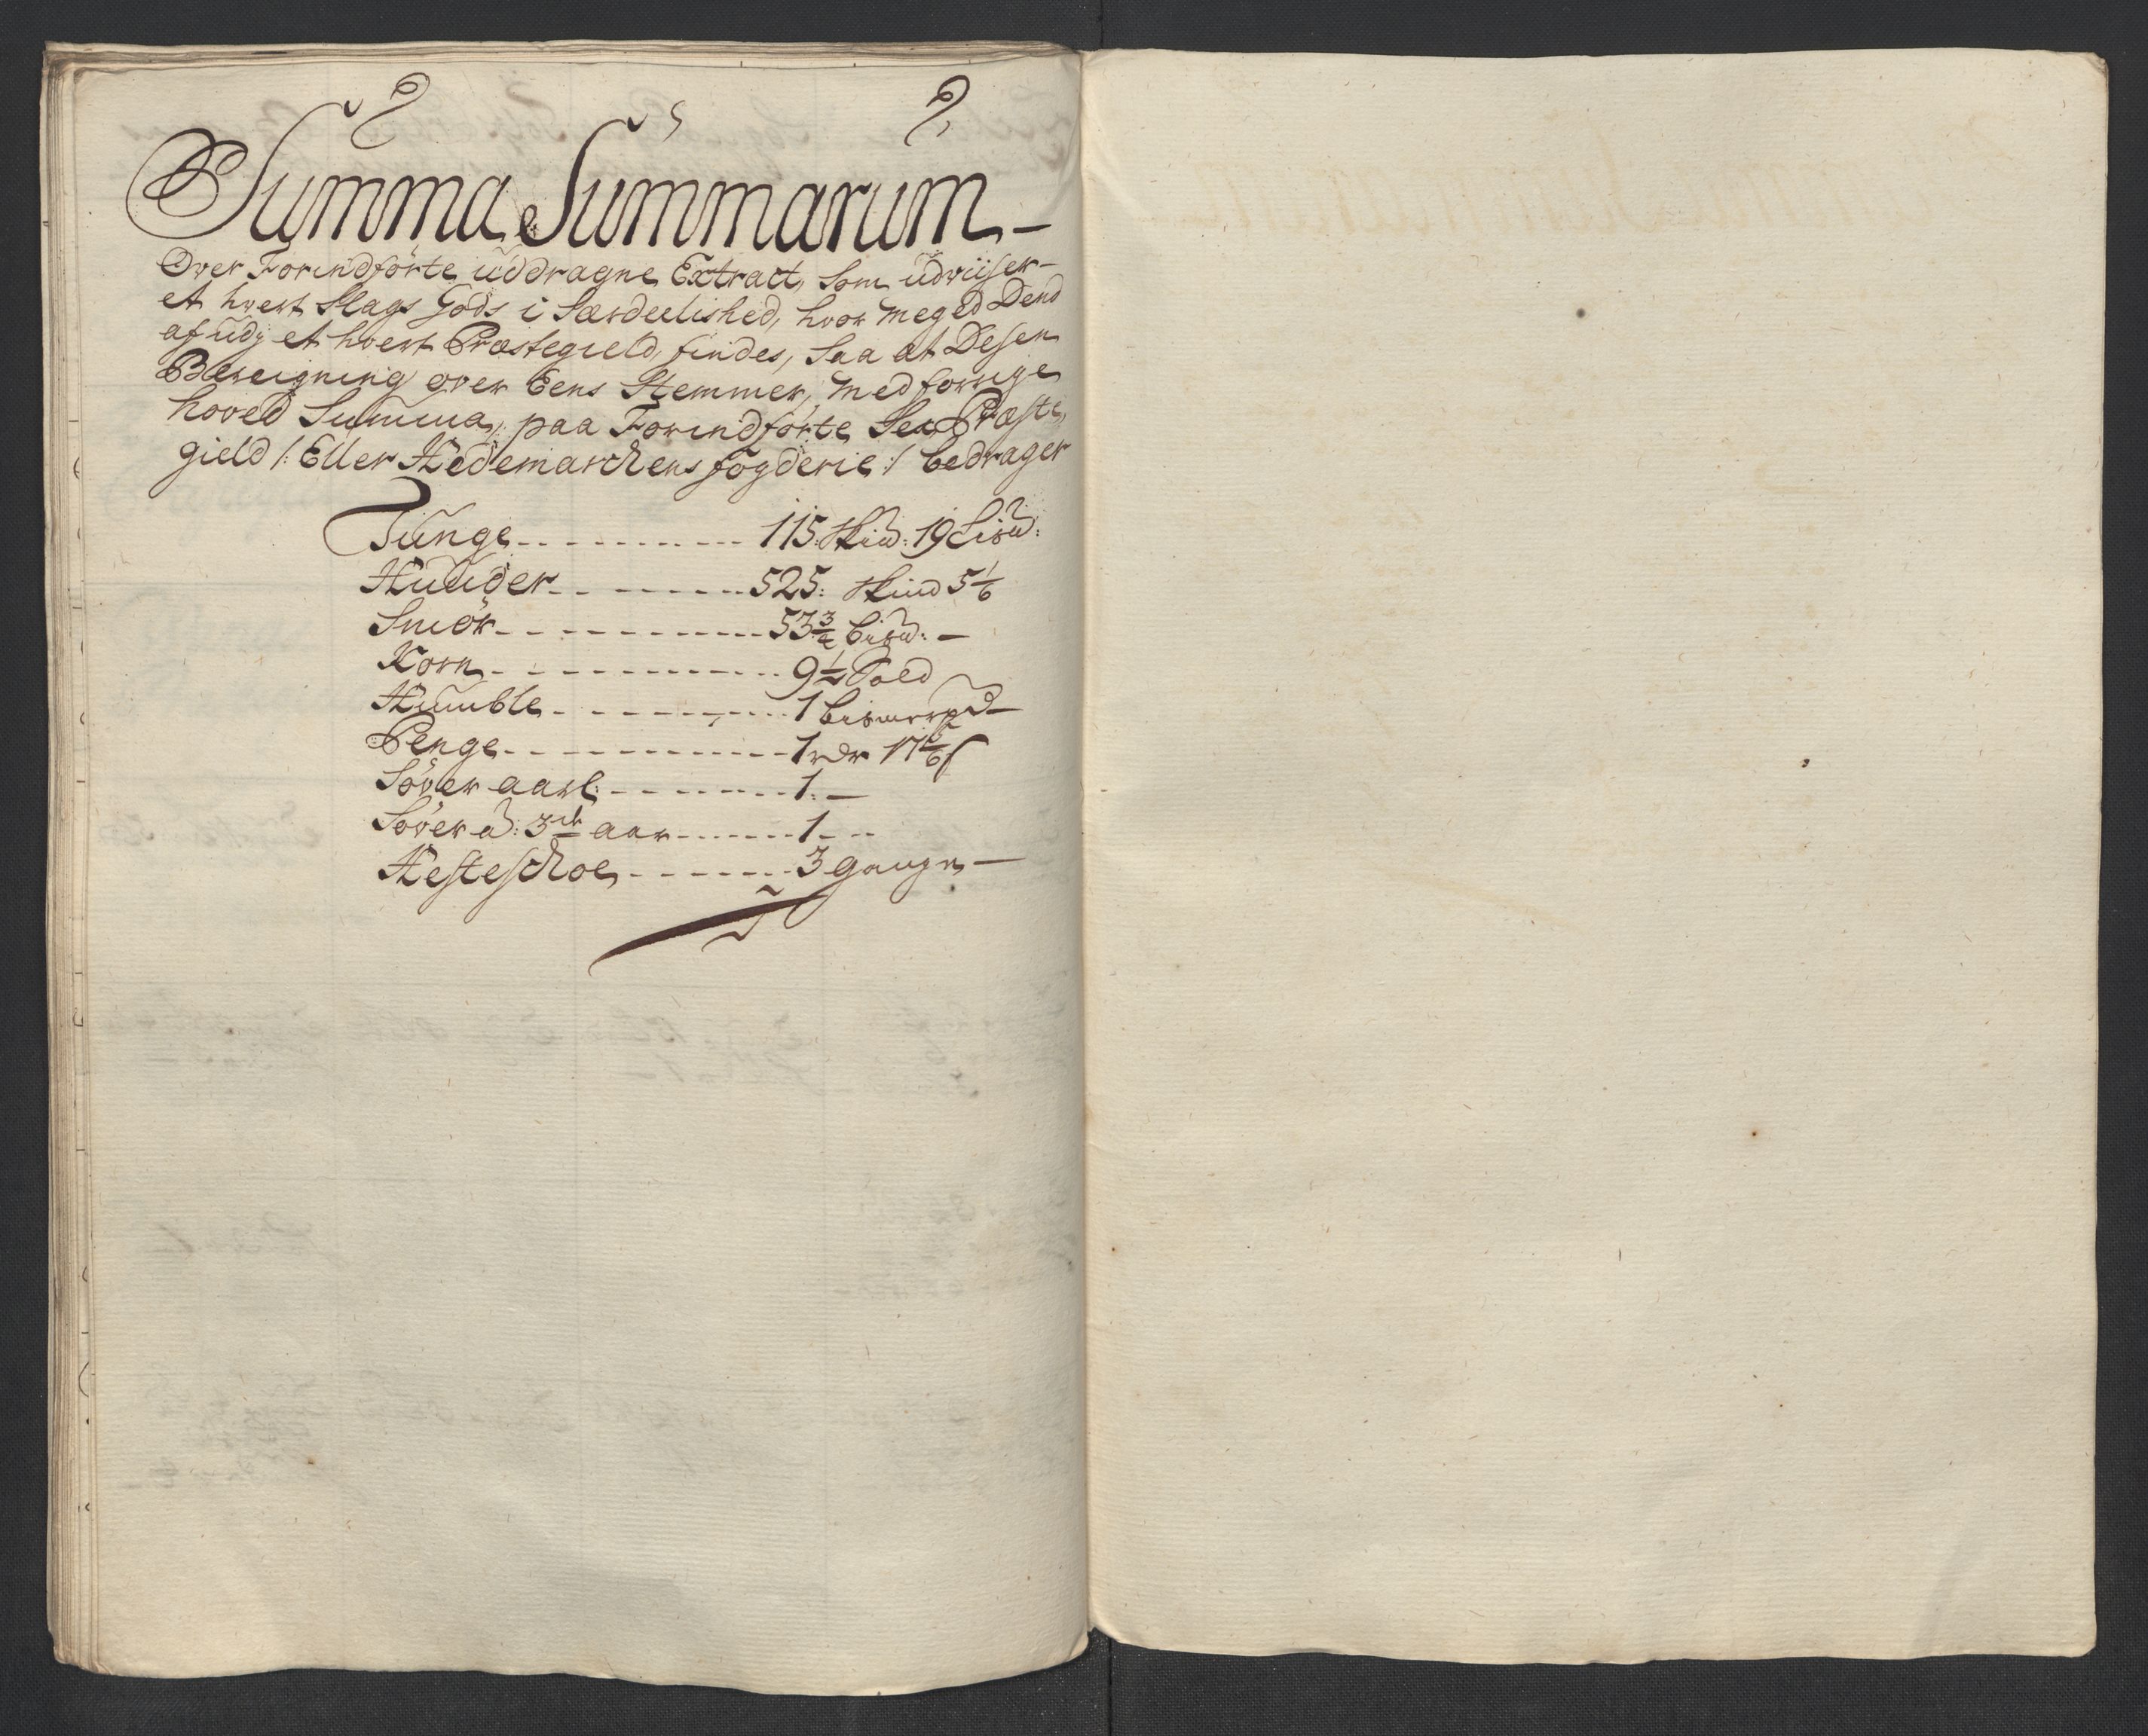 Summa Summarum –
Over Forindførte uddragne Extract, Som udviiser
et hvert Slags Gods i Særdeelished, hvor meged Dend
af udj et hvert Præstegield, findes, Saa at Desen
Bereigning over Eens Stemmer, med forrige
hoved Summa, paa Forindførte Sex Præste,
gield /: Eller Hedemarchens fogderie :/ bedrager
Tunge - - - - 115: Skīd: 19 Lisū:
Huuder - - - - 525: Skind 5 1/6
Smør - - - - 53 3/4 bisū: –
Korn - - - - 9 1/2 Sold
Humble - - - - 1 bismerpd –
Penge - - - - 1 rdr 17 5/6 ß
Søver aarl: - - - - 1: –
Søver a: 3de aar - - - - 1 - -
Hesteschoe - - - - 3 gange –